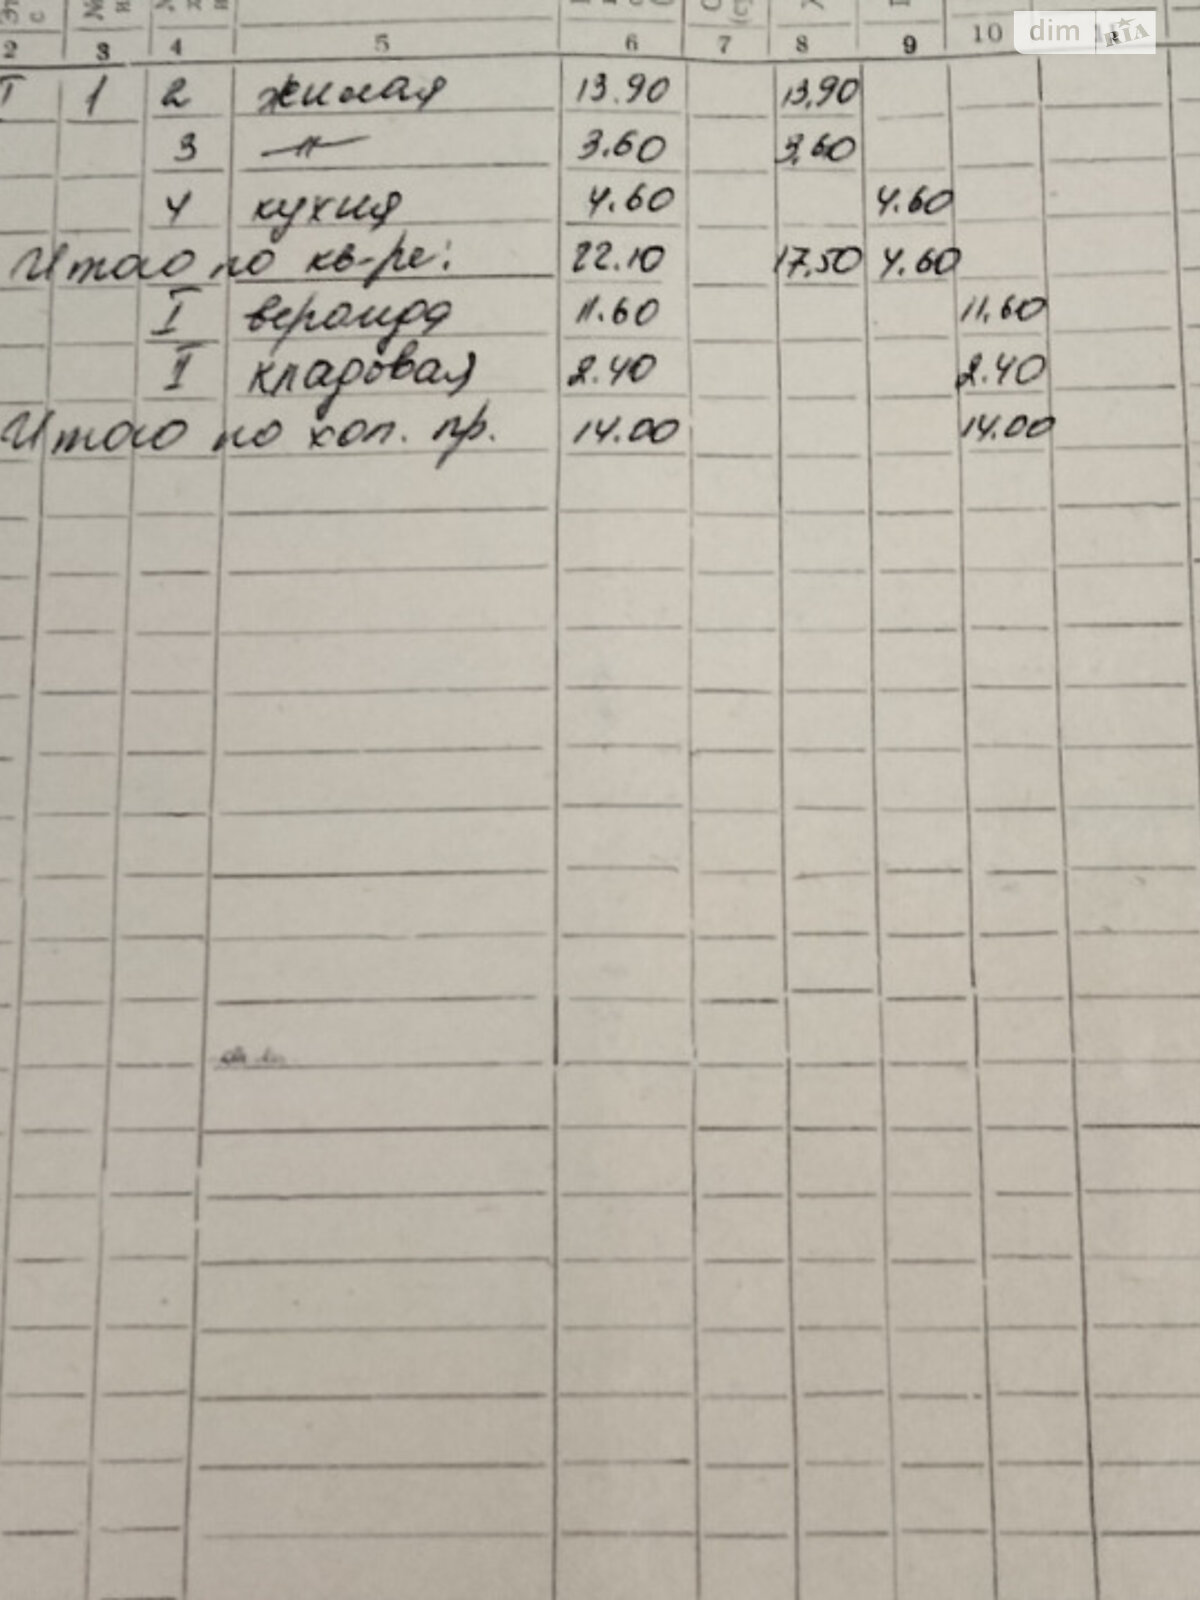 dim RIA
2 3 4 5 6 7 8 9 10
I 1 2 жилая 13.90 13,90
3 —"— 3.60 3,60
4 кухня 4.60 4.60
Итого по кв-ре: 22.10 17,50 4.60
I веранда 11.60 11,60
II кладовая 2.40 2.40
Итого по хол. пр. 14.00 14.00